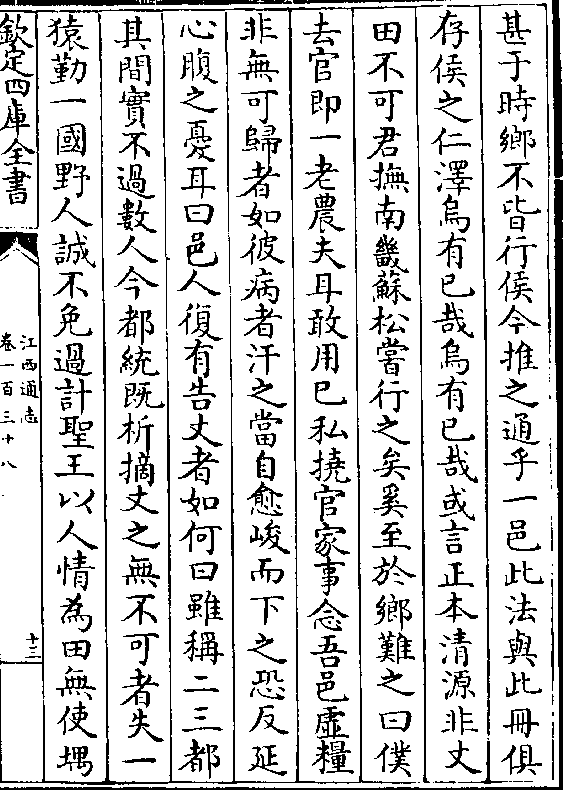 甚于時鄉不皆行侯今推之通乎一邑此法與此冊俱
存侯之仁澤烏有已哉烏有已哉或言正本清源非丈
田不可君撫南畿蘇松嘗行之矣奚至於鄉難之曰僕
去官即一老農夫耳敢用已私撓官家事念吾邑虛糧
非無可歸者如彼病者汗之當自愈峻而下之恐反延
心腹之憂耳曰邑人復有告丈者如何曰雖稱二三都
其間實不過數人今都統既析摘丈之無不可者失一
猿勤一國野人誠不免過計聖王以人情為田無使堣
欽定四庫全書
江西通志
卷一百三十八
十三